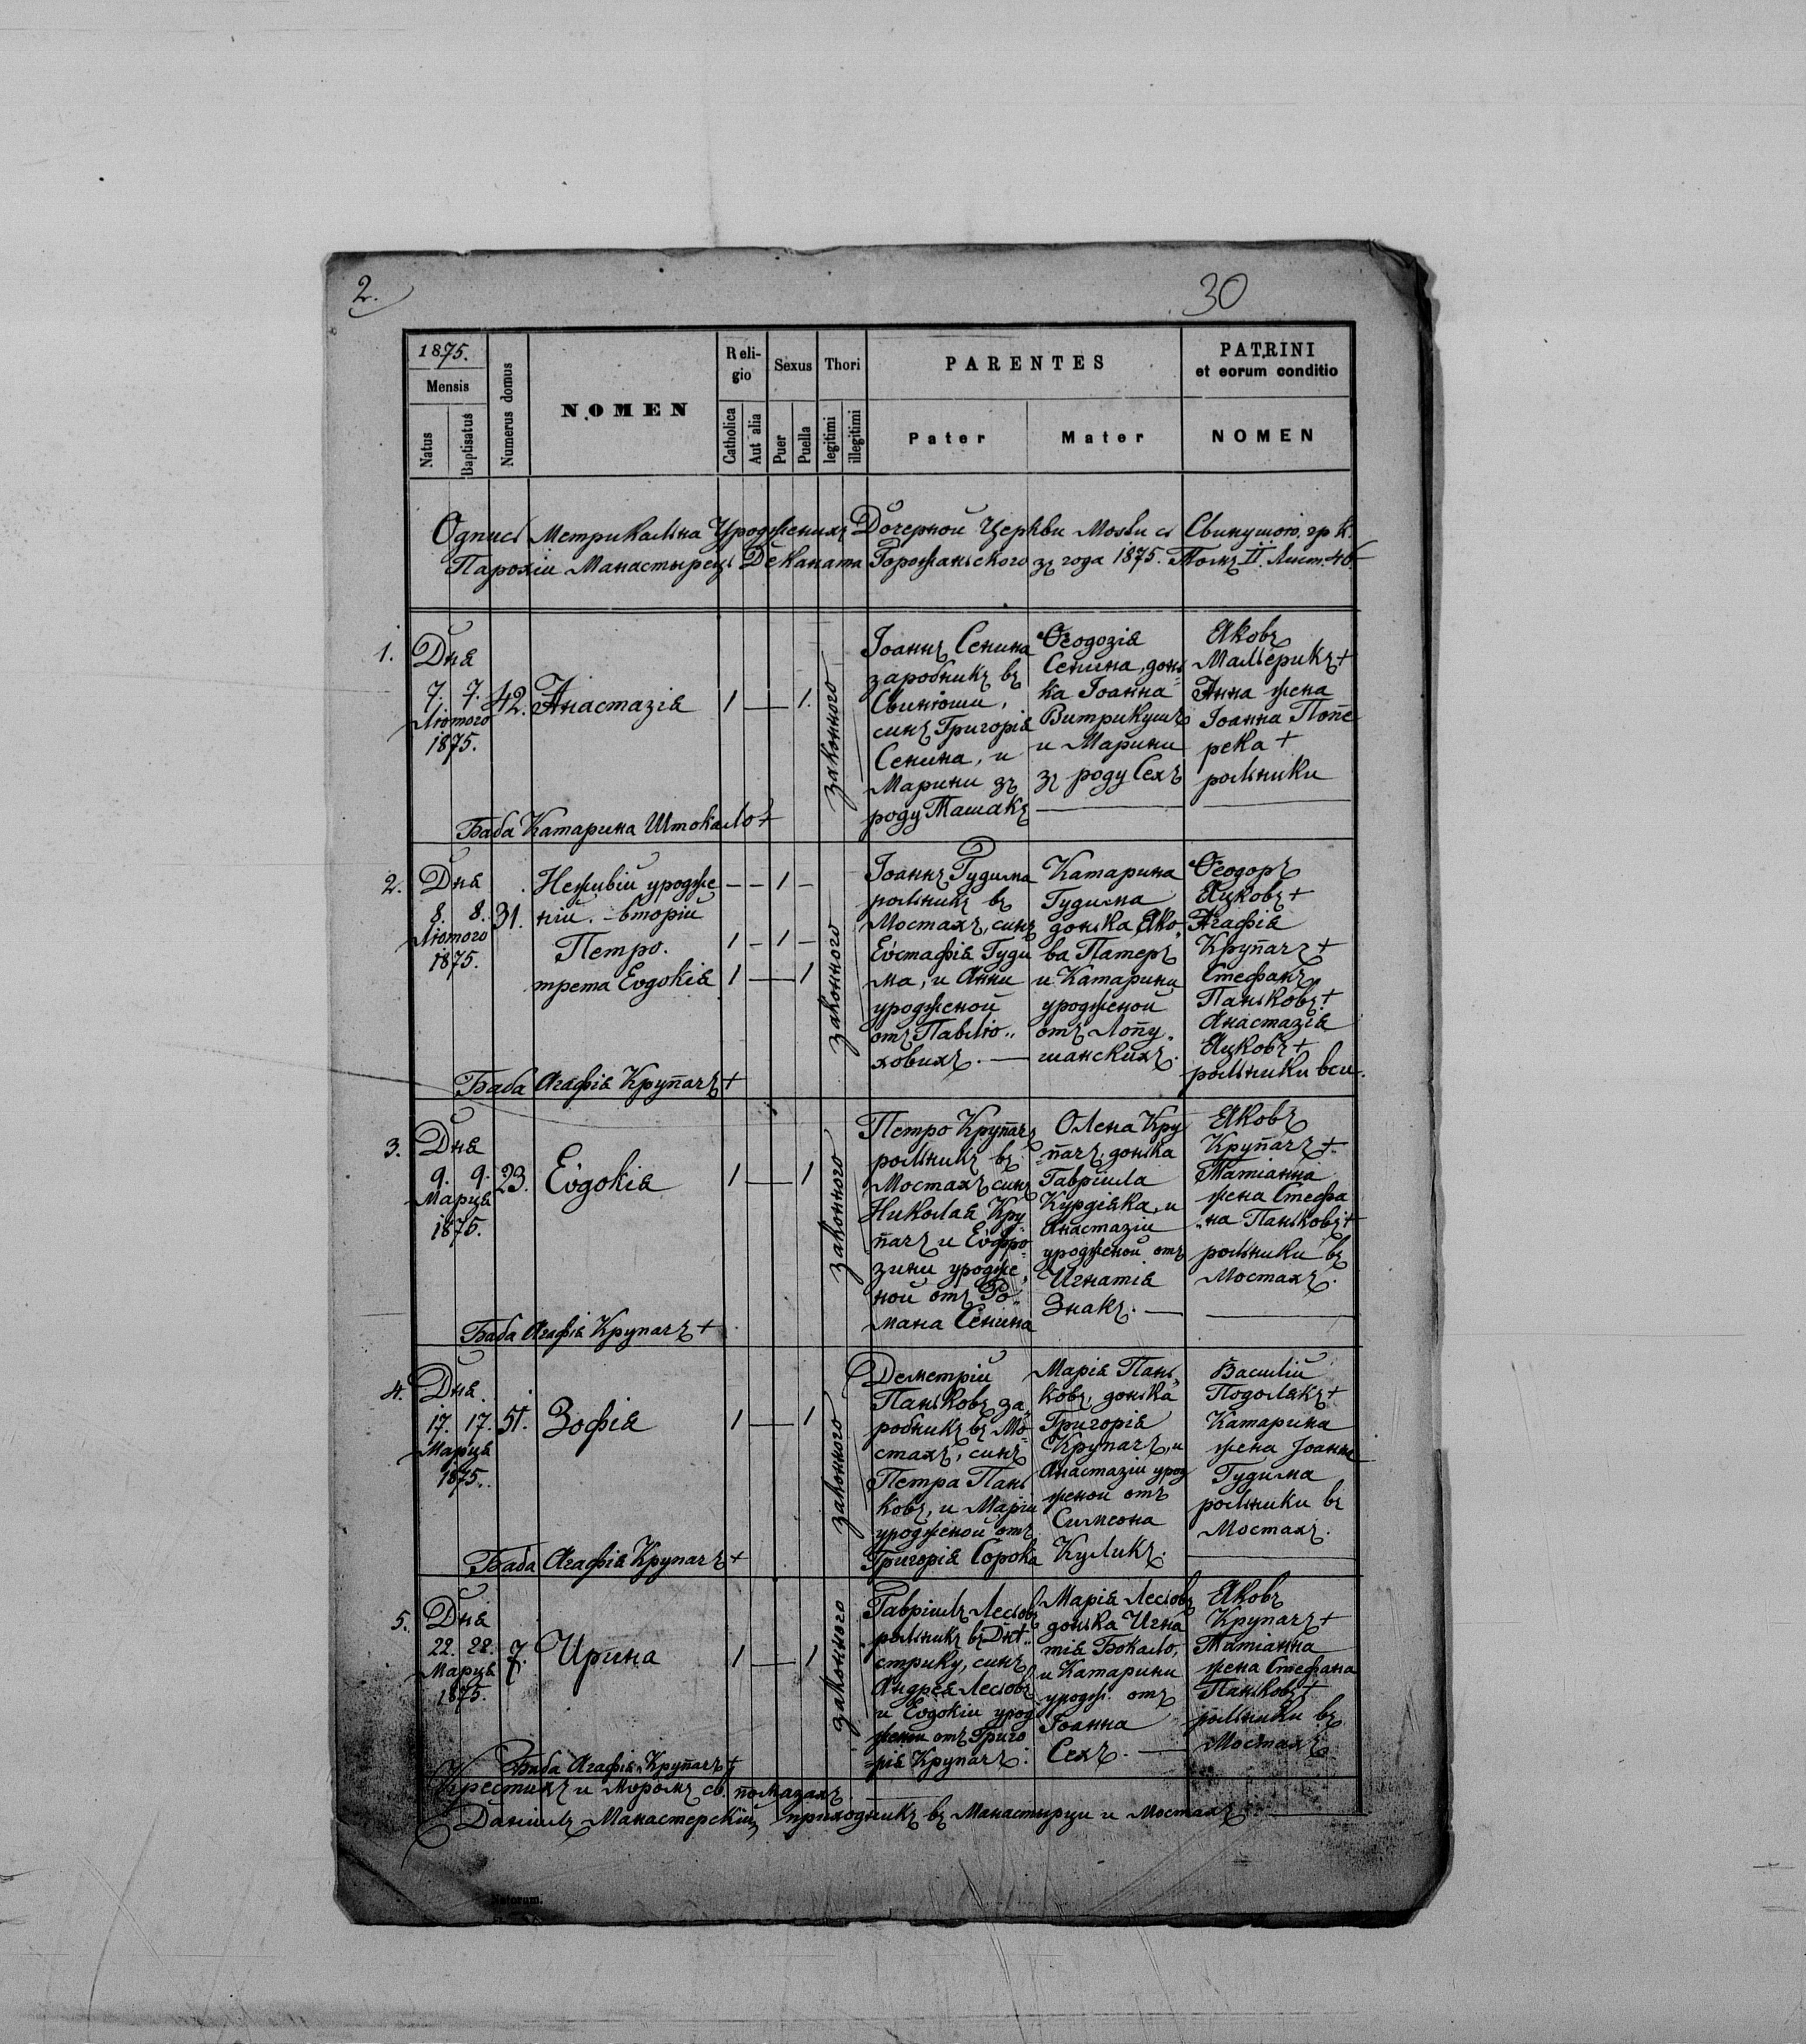 2.
30
1875.
Mensis
Natus
Baptisatus
Numerus domus
NOMEN
Religio
Catholica
Aut alia
Sexus
Puer
Puella
Thori
legitimi
illegitimi
PARENTES
Pater
Mater
PATRINI
et eorum conditio
NOMEN
Одпись Метрикальна Урожденихъ Дочерной Церкви Мосты съ Свинушою гр. к.
Парохіи Манастырець Деканата Горожаньского зъ года 1875. Томъ II. Лист. 46
1.
Дня
7. 7.
Лютого
1875.
42.
Анастазія
1 — 1.
законного
Іоаннъ Сенина
заробникъ въ
Свинюши,
синъ Григорія
Сенина, и
Марини зъ
роду Ташакъ
Ѳеодозія
Сенина, донь
ка Іоанна
Витрикушъ
и Марини
зъ роду Сехъ
Яковъ
Мальерикъ +
Анна жена
Іоанна Попе
река +
рольники
Баба Катарина Штокало +
2.
Дня
8. 8.
Лютого
1875.
31.
Неживій урожде
ній. - вторій
Петро.
трета Еѵдокія
— — 1 —
1 — 1 —
1 — 1
законного
Іоаннъ Гудима
рольникъ въ
Мостахъ, синъ
Еѵстафія Гуди
ма, и Анни
урожденой
отъ Павлю„
ховихъ. —
Катарина
Гудима
донька Яко„
ва Патеръ
и Катарини
урожденой
отъ Лопу„
шанскихъ.
Ѳеодоръ
Яцковъ +
Агафія
Крупачъ +
Стефанъ
Паньковъ +
Анастазія
Яцковъ +
рольники вси.
Баба Агафія Крупачъ +
3.
Дня
9. 9.
Марця
1875.
23.
Еѵдокія
1 — 1
законного
Петро Крупачъ
рольникъ въ
Мостахъ синъ
Николая Кру
пачъ и Еѵфро
зини урожде„
ной отъ Ро„
мана Сенина
Олена Кру
пачъ, донька
Гавріила
Курдіяка, и
Анастазіи
урожденой отъ
Игнатія
Знакъ. —
Яковъ
Крупачъ +
Татіанна
жена Стефа
на Паньковъ +
рольники въ
Мостахъ.
Баба Агафія Крупачъ +
4.
Дня
17. 17.
Марця
1875.
51.
Зофія
1 — 1
законного
Деметрій
Паньковъ за„
робникъ въ Мо
стахъ, синъ
Петра Пань
ковъ, и Маріи
урожденой отъ
Григорія Сорока
Марія Пань„
ковъ, донька
Григорія
Крупачъ, и
Анастазіи урож
женой отъ
Симеона
Куликъ.
Василій
Подолякъ +
Катарина
жена Іоанна
Гудима
рольники въ
Мостахъ.
Баба Агафія Крупачъ +
5.
Дня
22. 28.
Марця
1875.
7.
Ирина
1 — 1
законного
Гавріилъ Лесювъ
рольникъ въ Днѣ„
стрику, синъ
Андрея Лесювъ
и Еѵдокіи урож
женой отъ Григо
рія Крупачъ.
Марія Лесювъ
донька Игна
тія Бокало,
и Катарини
урожд. отъ
Іоанна
Сехъ. —
Яковъ
Крупачъ +
Татіанна
жена Стефана
Паньковъ +
рольники въ
Мостахъ
Баба Агафія Крупачъ +
Крестилъ и Миромъ св. помазалъ
Даніилъ Манастерскій, приходникъ въ Манастырци и Мостахъ
Natorum.